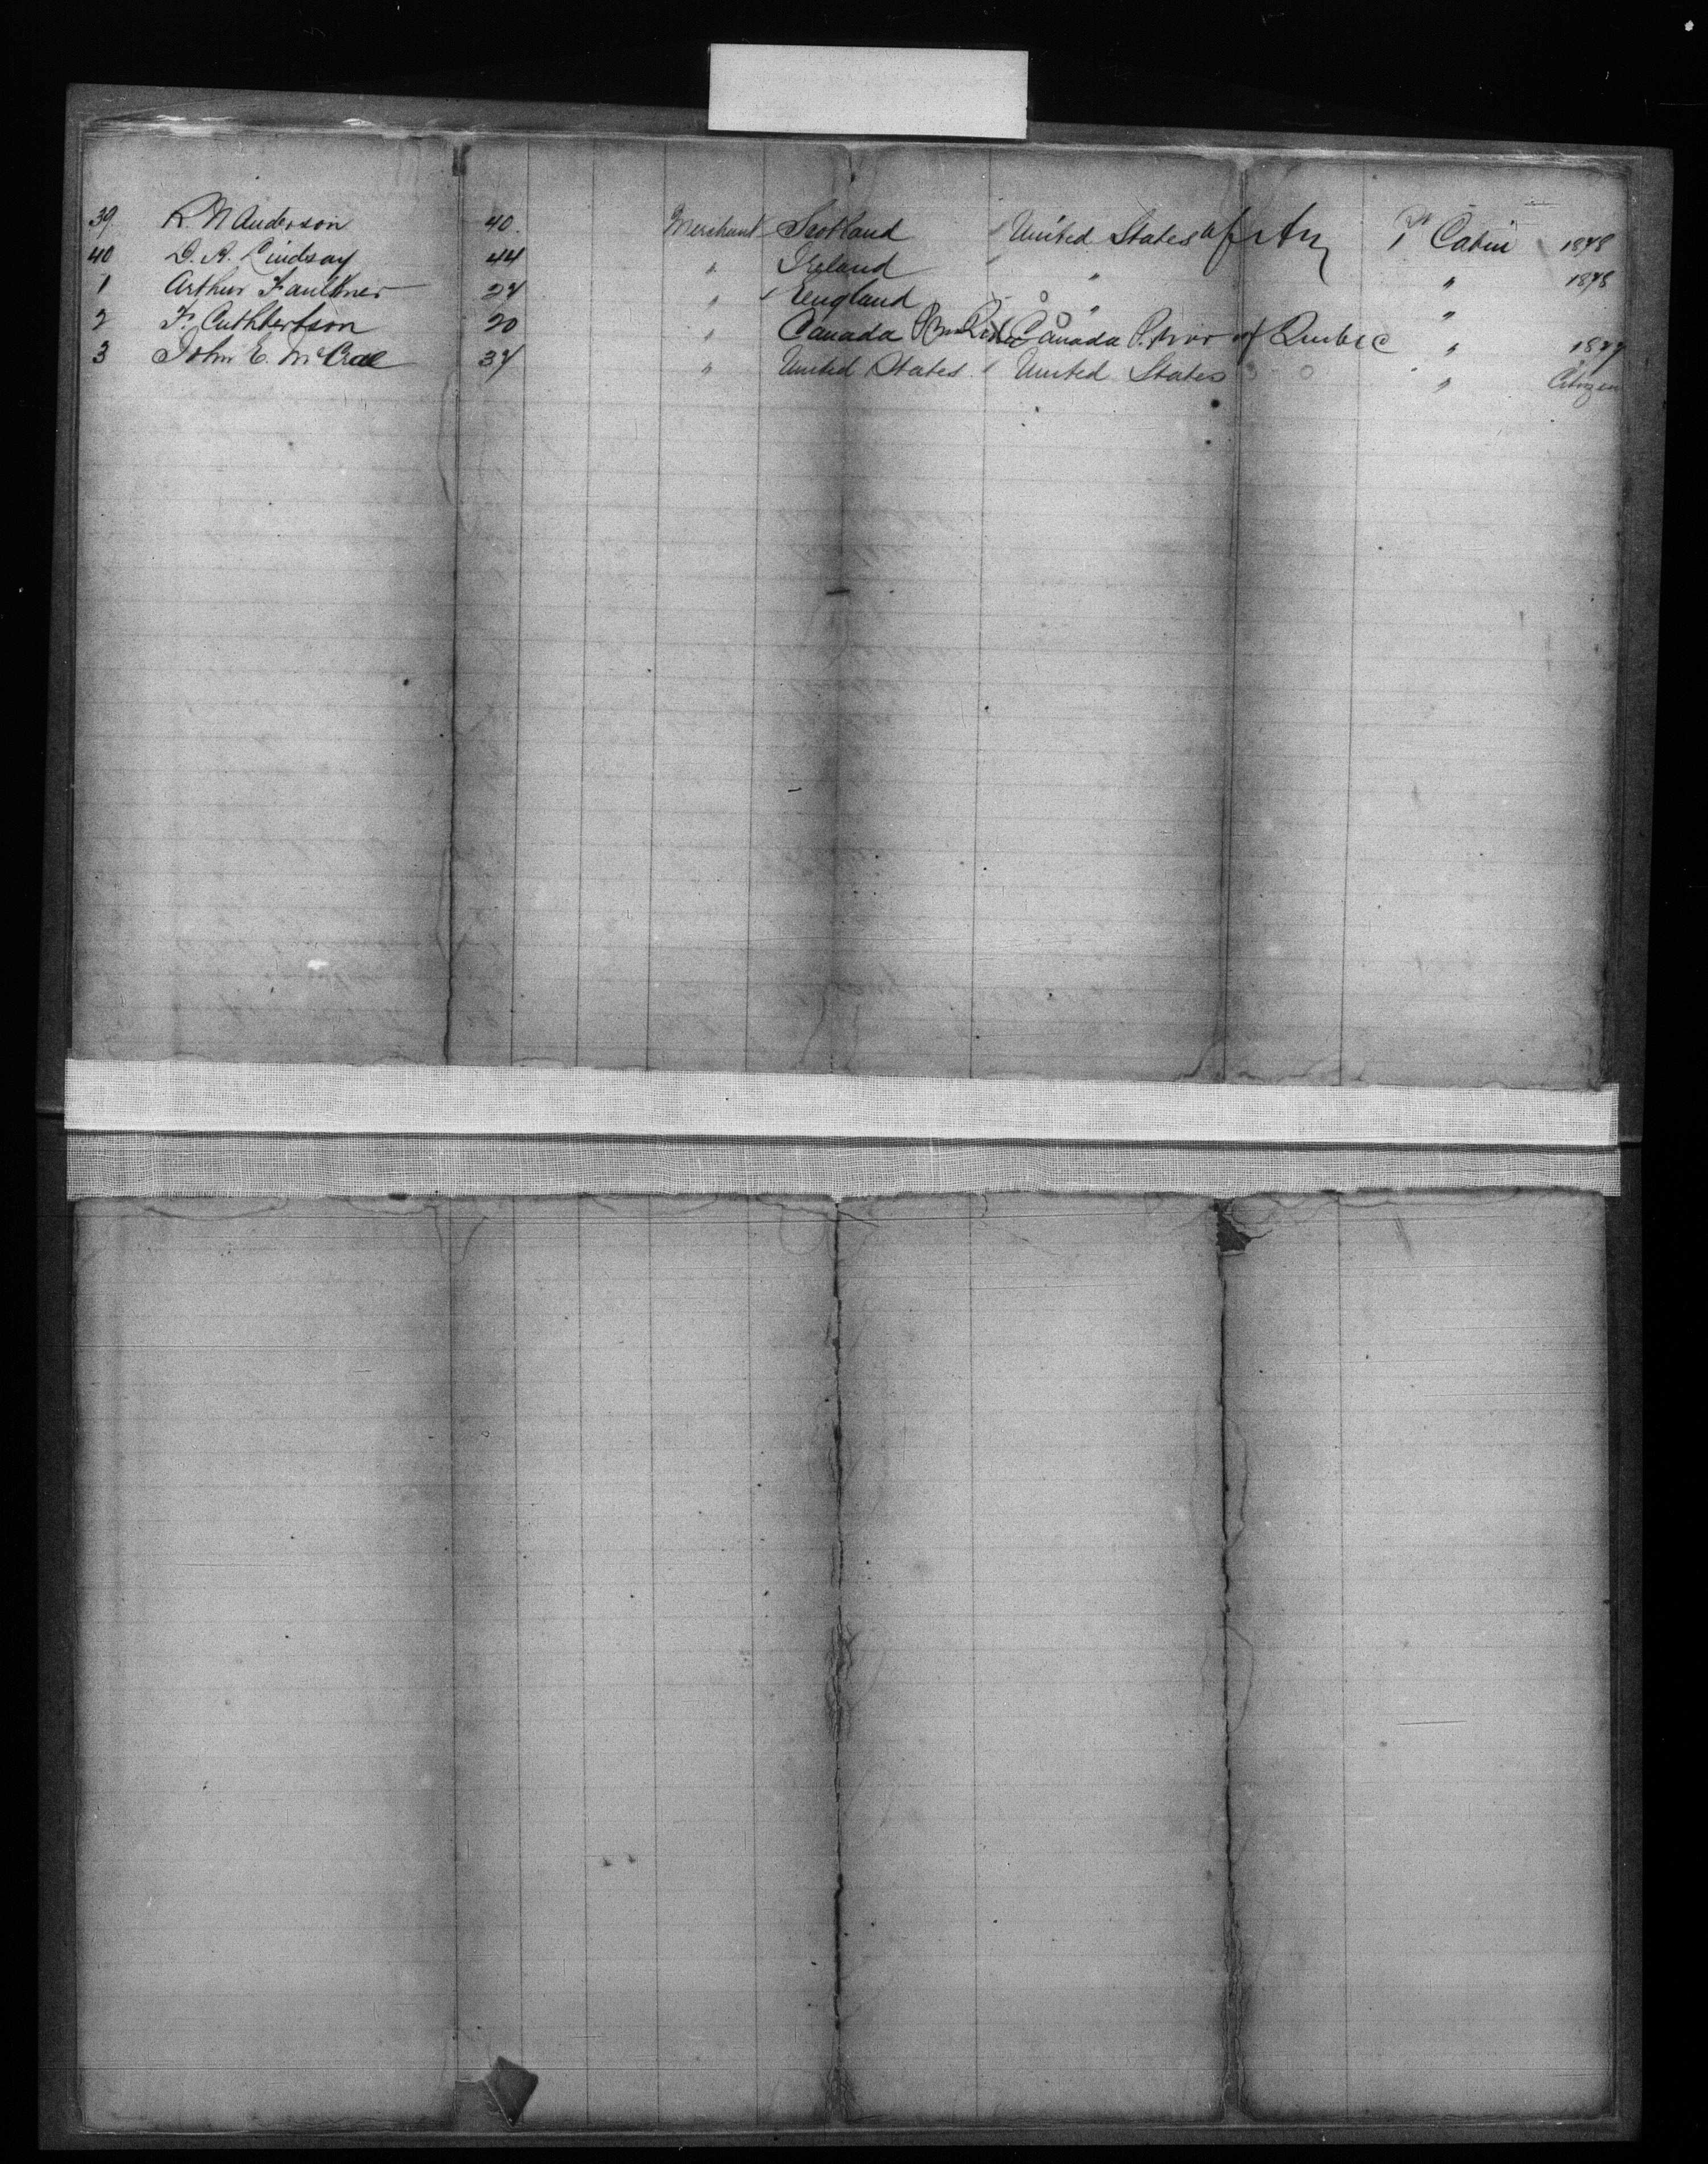 39. R. N Anderson 40. Merchant Scotland United States of Am 1st Cabin 1878
40 D. A. Lindsay 44 " Ireland " " 1878
1 Arthur Faulkner 24 " England " "
2 F. Cuthbertson 20 " Canada Canada P. Prov of Quebec " 1879
3 John E. McCrae 34 " United States United States " Citizen